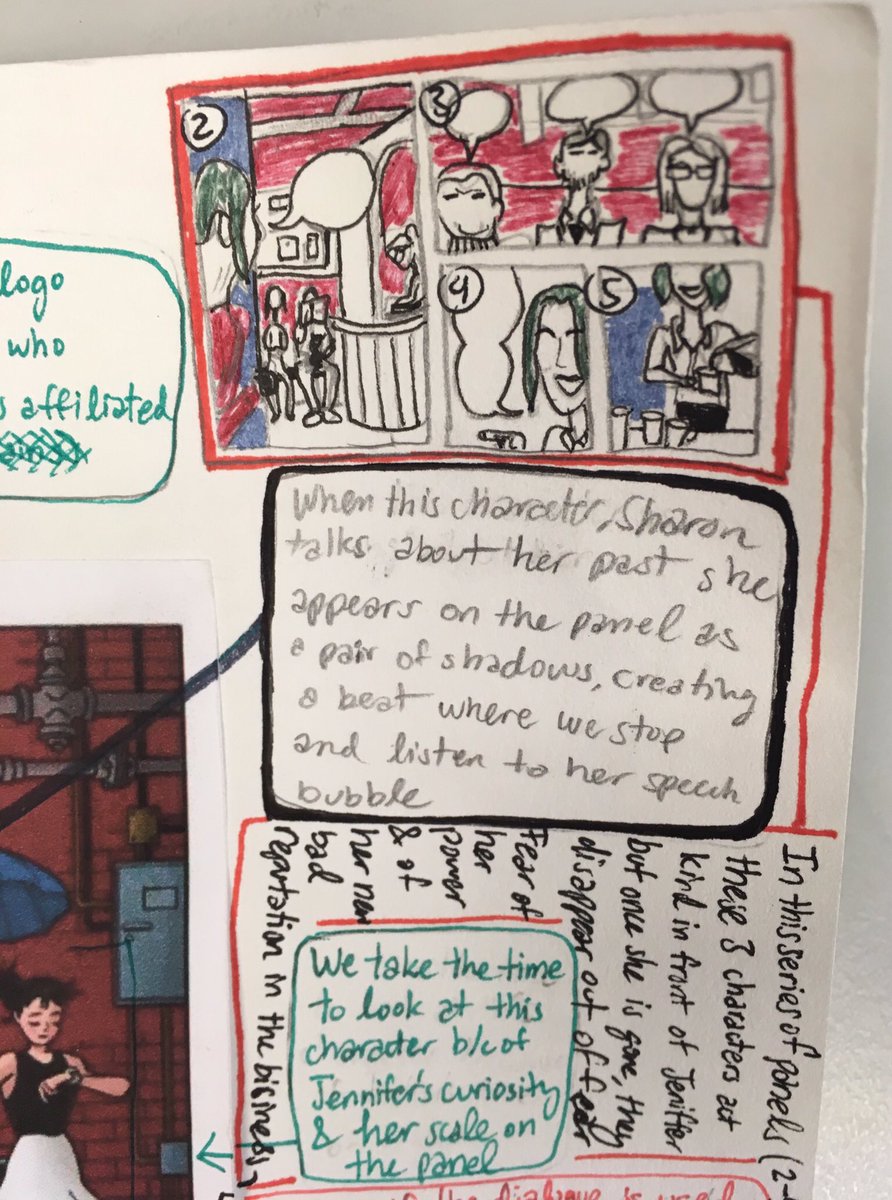 2
3
4
5
logo
who
s affiliated
When this character, Sharon
talks about her past she
appears on the panel as
a pair of shadows, creating
a beat where we stop
and listen to her speech
bubble
In this series of panels (2-
these 3 characters act
kind in front of Jenifier
but once she is gone, they
disappear out of fear
Fear of
her
power
& of
her new
bad
reputation in the business
We take the time
to look at this
character b/c of
Jennifer's curiosity
& her scale on
the panel
the dialogue is